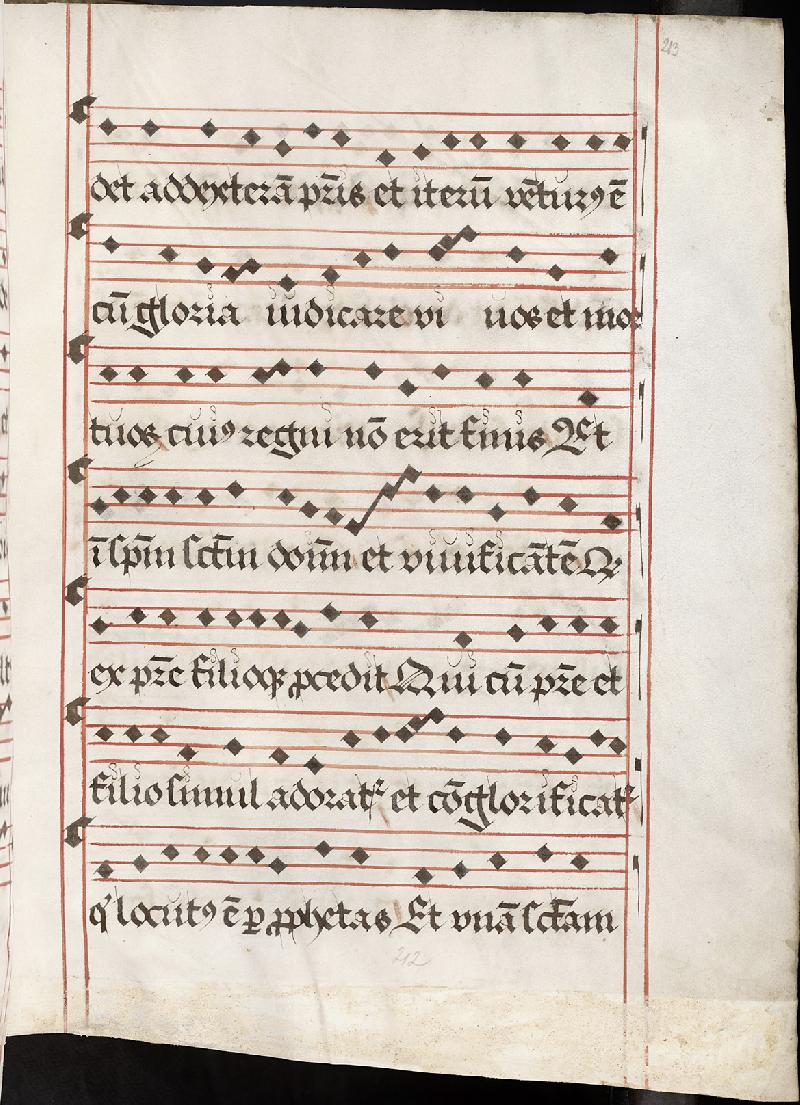 213
det ad dexterā p̄ris et iterū vētur⁹ ē
cū gloria iudicare vi uos et mor
tuos cui⁹ regni nō erit finis Et
ī sp̄m sctm̄ dom̄ et viuificātē Q
ex pr̄e filioqꝫ ꝓcedit Qui cū pr̄e et
filio simul adorat᷑ et cōglorificat᷑
q' locut⁹ ē ꝑ ꝓphetas Et vnā sctam
212